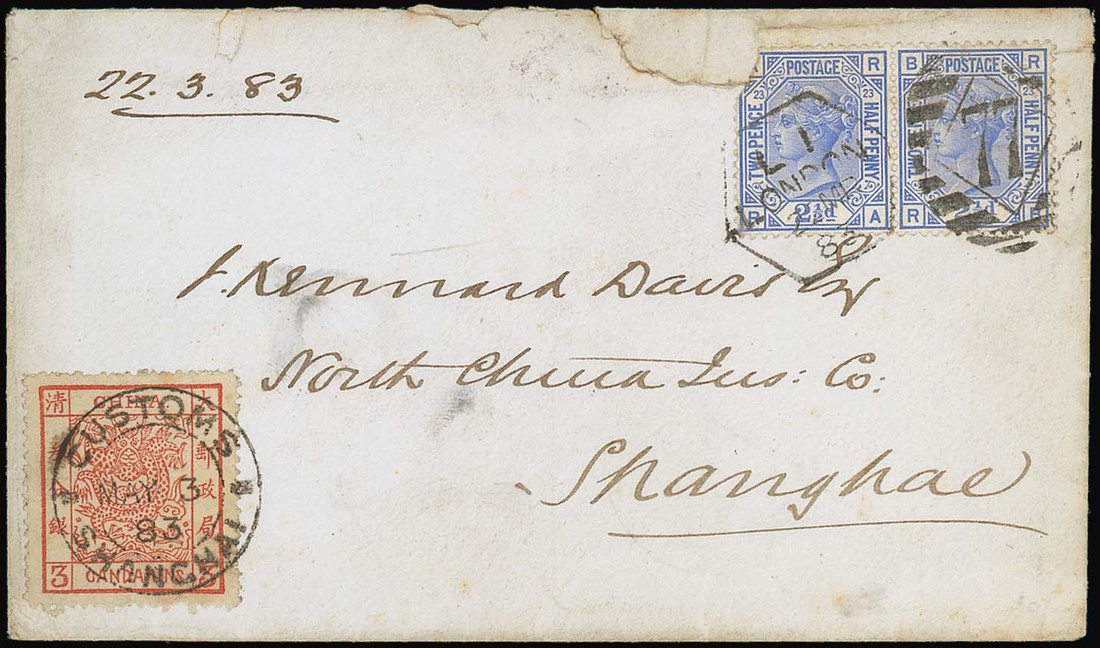 22. 3. 83
POSTAGE R
23 23
TWO PENCE HALF PENNY
2½d A
B POSTAGE R
23
HALF PENNY
R 2½d B
LONDON
83
11
J. Kennard Davis Esq
North China Ins: Co:
Shanghae
清 CHINA 大
郵政局
銀
3 CANDARINS 3
CUSTOMS
MAY 3
83
SHANGHAI